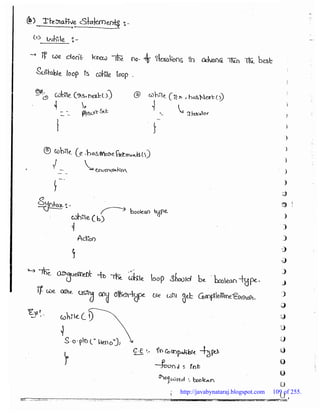 (b) Iterative Statements :-
(1) while :-
→ If we don't know the no. of iterations in advance then the best
Suitable loop is while loop.
Eg: ① while (rs.next()) ② while (itr.hasNext())
{ {
-- ResultSet -- Iterator
} }
③ while (e.hasMoreElements())
{
-- enumeration
}
Syntax :-
while (b) → boolean type
{
Action
}
→ The argument to the while loop should be boolean type.
If we are using any other type we will get CompileTimeError.
Ex:- while (1)
{
S.o.pln("Hello");
}
C.E :- incompatible types
found : int
required : boolean
http://javabynataraj.blogspot.com 109 of 255.